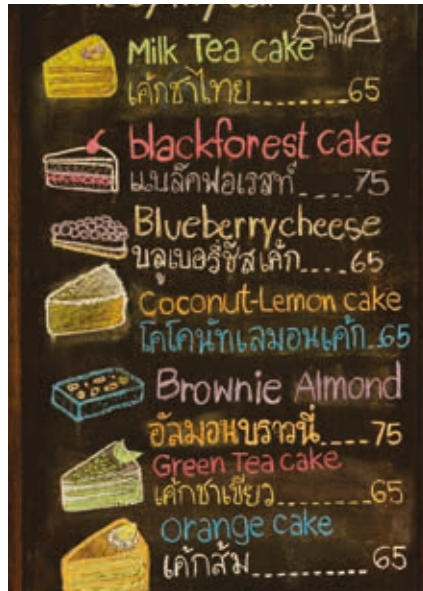 Milk Tea cake
เค้กชาไทย........65
blackforest cake
แบล๊คฟอเรสท์....75
Blueberrycheese
บลูเบอรี่ชีสเค้ก....65
Coconut-Lemon cake
โคโคนัทเลมอนเค้ก..65
Brownie Almond
อัลมอนบราวนี่....75
Green Tea cake
เค้กชาเขียว........65
orange cake
เค้กส้ม..........65